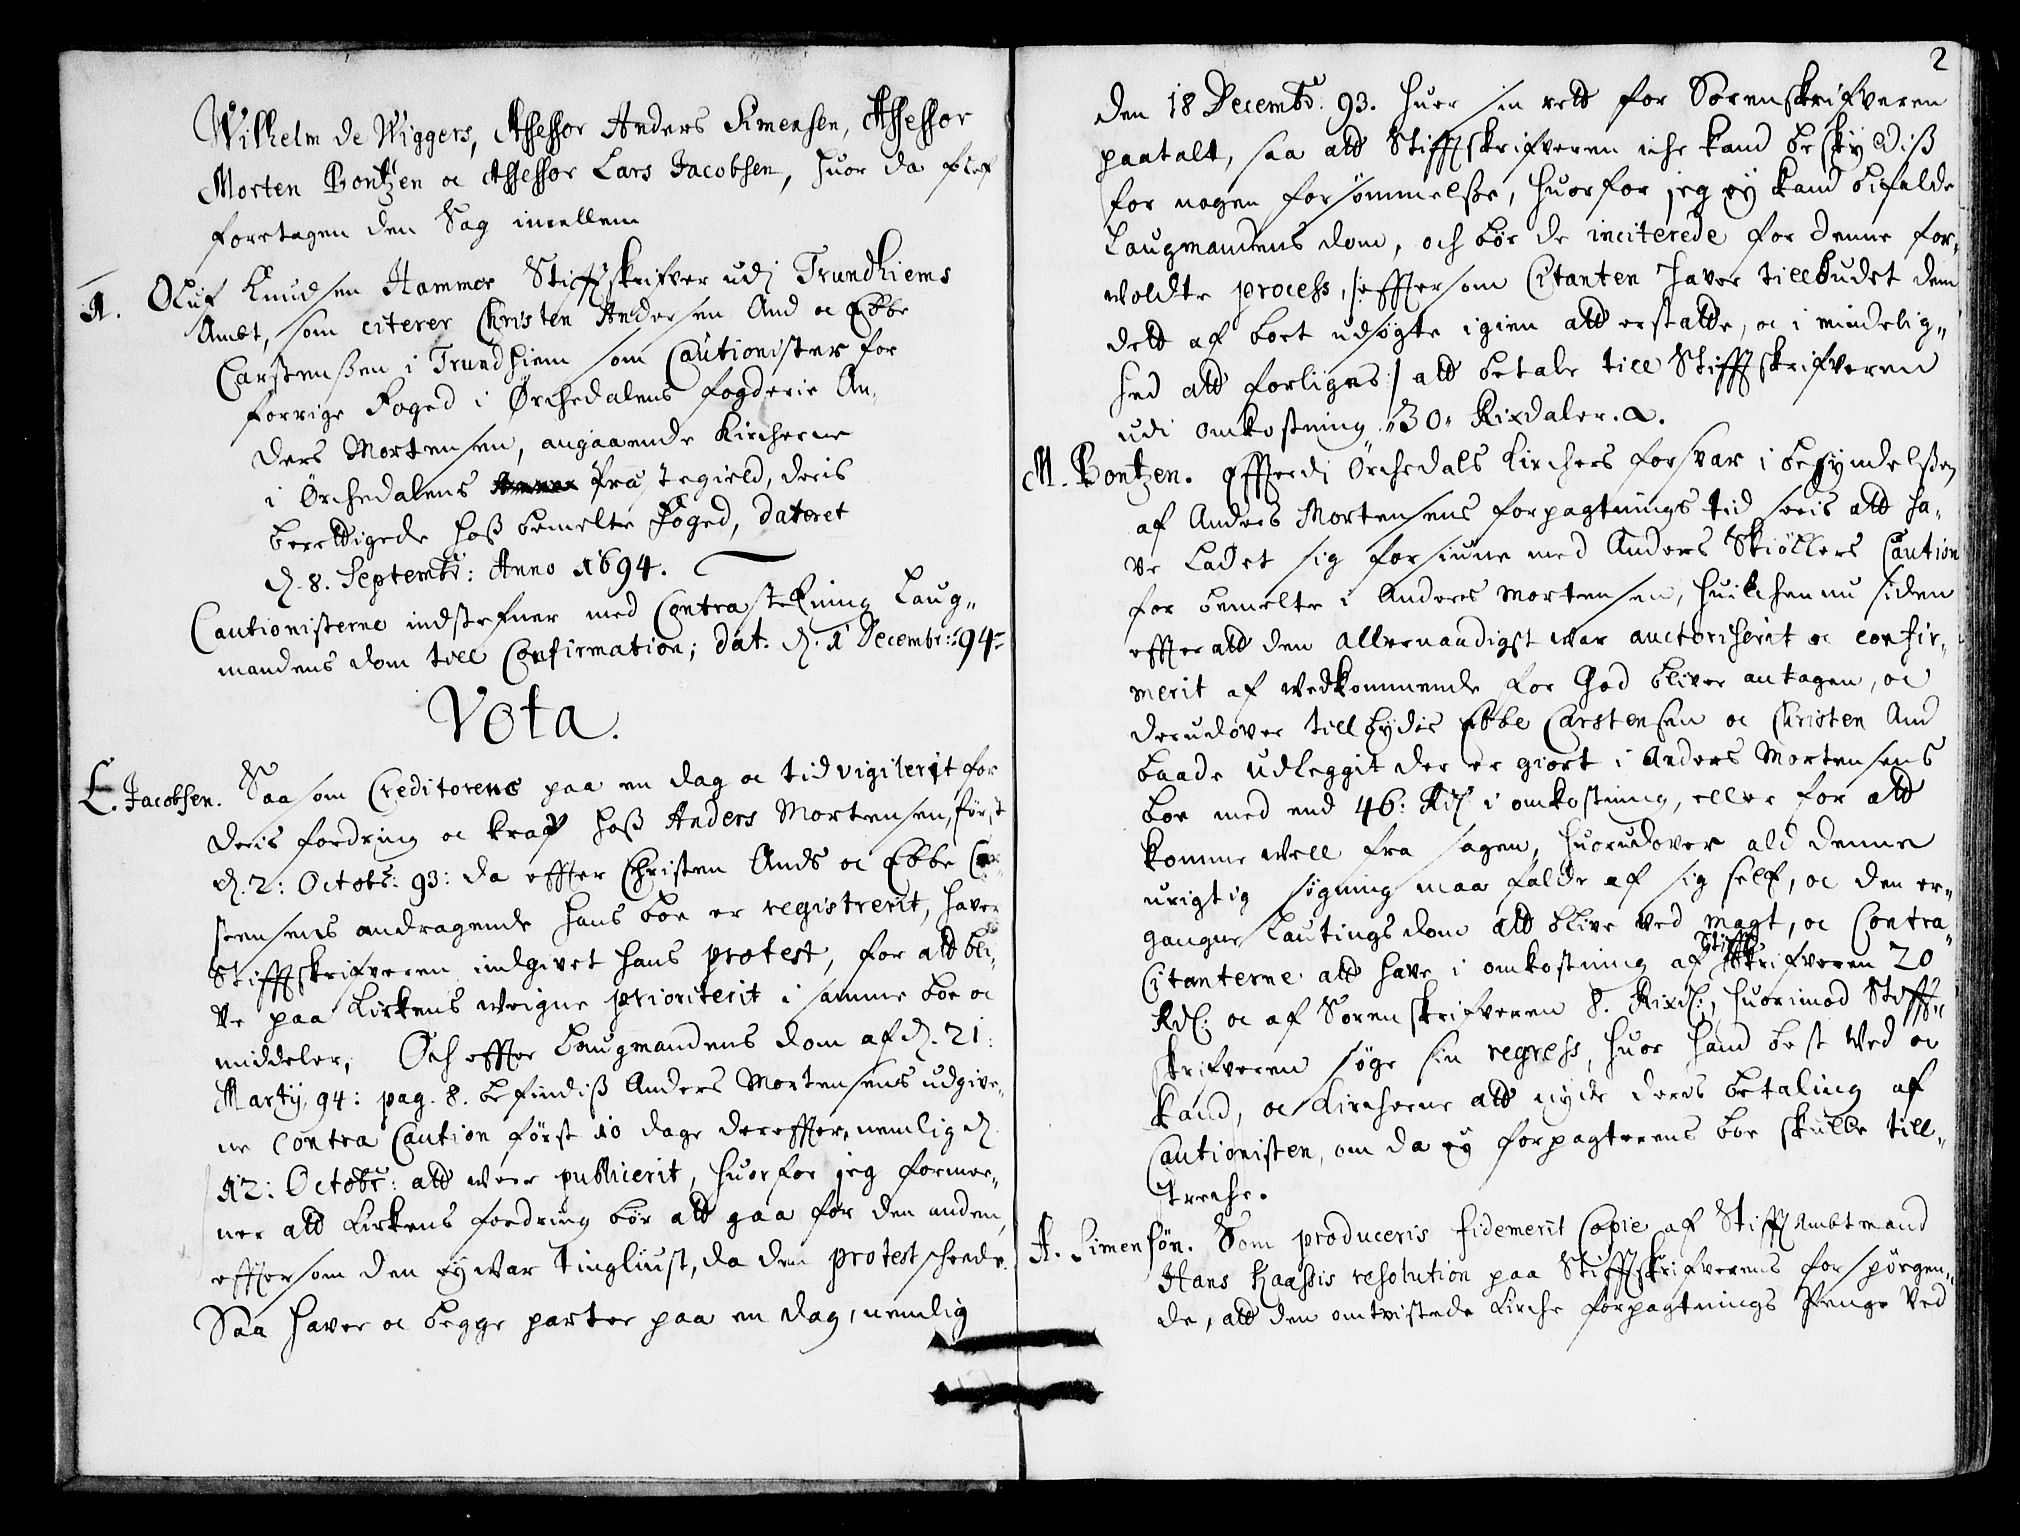 Wilhelm de Wiggers, Assessor Anders Simensen, Assessor
Morten Bontzen oc Assessor Lars Jacobsen, huor da blef
foretagen den Sag imellem
1. Oluf Knudsen Hammer Stifftskrifver udj Trundhiems
Ambt, som citerer Christen Andersen Aud oc Ebbe
Carstenssen i Trundhiem som Cautionister for
forrige Foged i Ørchedalens fogderie An-
ders Mortensen, angaaende Kircherne
i Ørchedalens Præstegield, deris
berettigede hoss bemelte Foged, dateret
d. 8. Septembr: Anno 1694.
Cautionisterne indstefner med Contrastefning Laug-
mandens dom till Confirmation; dat. d. 1 Decembr: 94
Vota.
L. Jacobsen. Saasom Creditorene paa en dag oc tid vigilerit for
deris fordring oc kraf hoss Anders Mortensen, først
d. 2: Octobr: 93: da effter Christen Auds oc Ebbe Car-
stensens andragende hans boe er registrerit, haver
Stifftskrifveren indgivet hans protest, for att bli-
ve paa Kirkens weigne prioriterit i samme boe oc
middeler, Och effter Laugmandens dom af d. 21:
Martij 94: pag. 8. befindiss Anders Mortensens udgive-
ne Contra Caution først 10 dage dereffter, nemlig d.
12: Octobr: att were publicerit, huorfor jeg formee-
ner att Kirkens fordring bør att gaa for den anden,
effter som den ey war tingliust, da den protest scheede.
Saa haver oc begge parter paa en dag, nemlig
2
den 18 Decembr: 93. huer sin rett for Sorenskrifveren
paatalt, saa att Stifftskrifveren iche kand beskyldiss
for nogen forsømmelsse, huorfor jeg ey kand bifalde
Laugmandens dom, och bør de inciterede for denne for-
woldte process, /: effter som Citanten haver tillbudet dem
dett af boet udsøgte igien att erstatte, oc i mindelig-
hed att forliges :/ att betale till Stifftskrifveren
udi omkostning 30 Rixdaler.
M. Bontzen. Effterdi Ørchedals Kirchers forsvar i begyndelssen
af Anders Mortensens forpagtnings tid sees att ha-
ve ladet sig fornøye med Anders Skiøllers Caution
for bemelte Anders Mortensen, huilchen nu siden
effter att den allernaadigst war auctoriserit oc confir-
merit af wedkommende for God bliver antagen, oc
derudover tillbydis Ebbe Carstensen oc Christen Aud
baade udleggit der er giort i Anders Mortensens
boe med end 46: Rdl i omkostning, eller for att
komme well fra sagen, huorudover ald denne
urigtig søgning maa falde af sig self, oc den er-
gangne Lautings dom att blive ved magt, oc Contra-
Citanterne att have i omkostning af Stifftskrifveren 20
Rdl: oc af Sorenskrifveren 8. Rixdl:, huorimod Stifft-
skrifveren søge sin regress, huor hand best ved oc
kand, oc Kircherne att nyde deris betaling af
Cautionisten, om da ey forpagterens boe skulle till-
treche.
A. Simensøn. Som produceris fidemerit Copie af Stifft Ambtmand
Hans Kaassis resolution paa Stifftskrifverens forspørgen-
de, att den omtvistede Kirche forpagtnings Penge ved